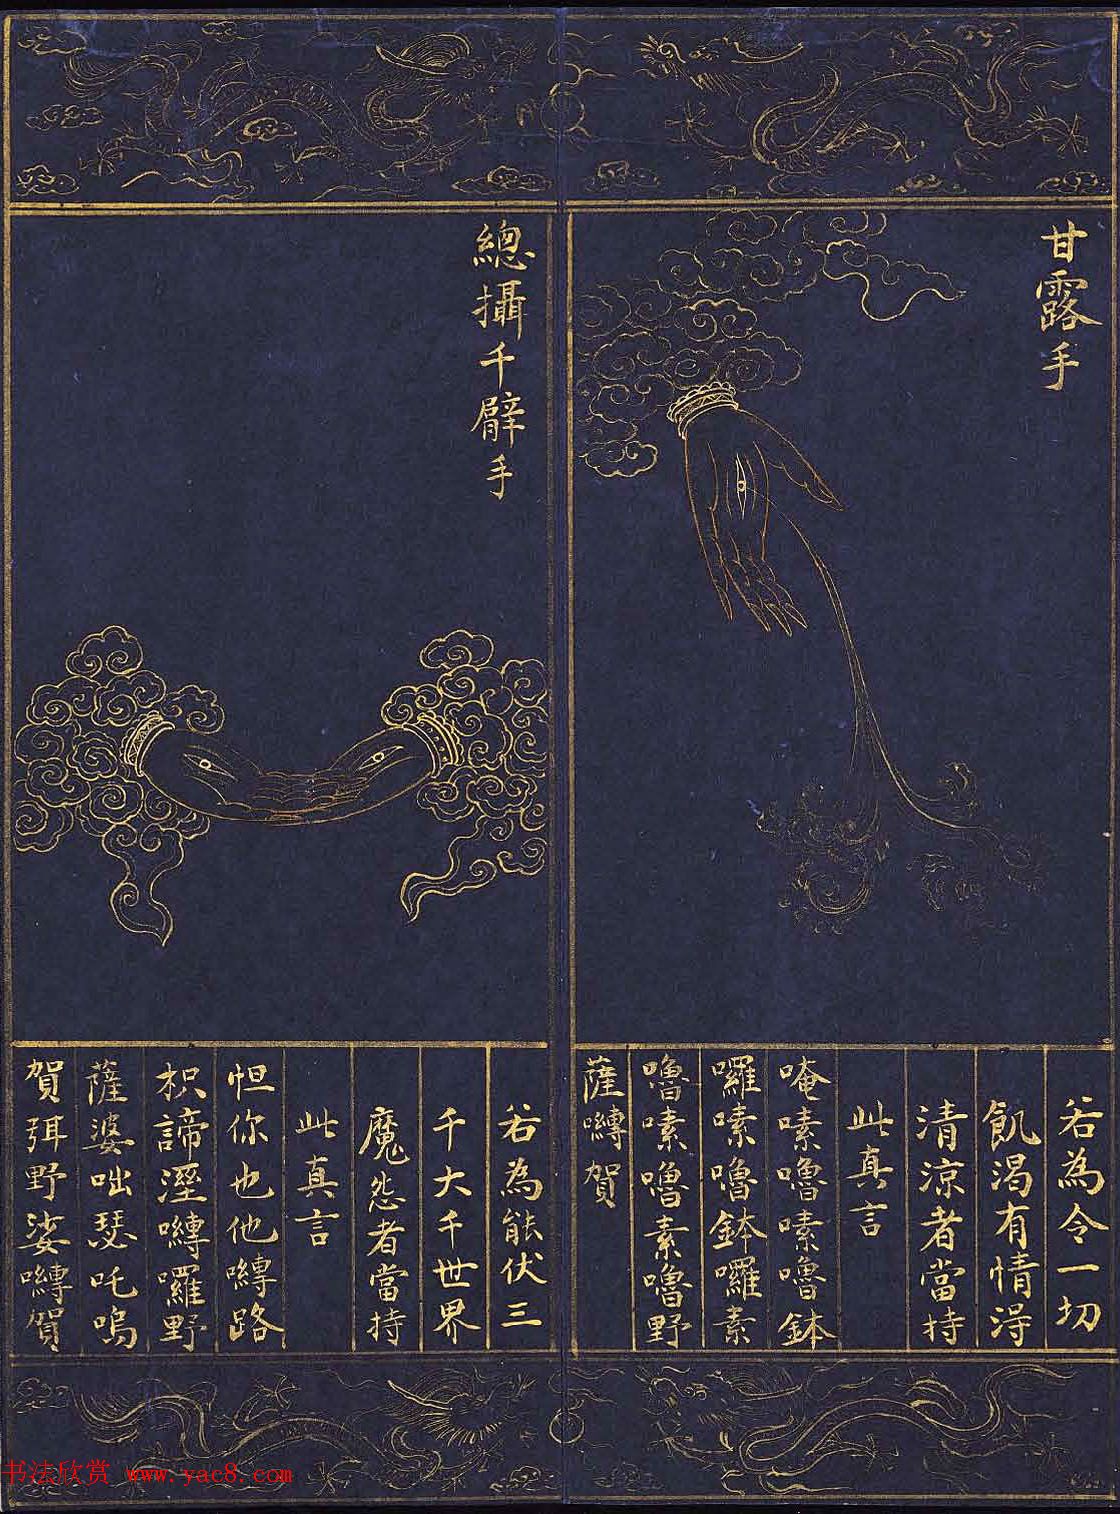 甘露手
若為令一切
飢渴有情淂
清涼者當持
此真言
唵嗉嚕嗉嚕鉢
囉嗉嚕鉢囉素
嚕嗉嚕素嚕野
薩嚩賀
總攝千臂手
若為能伏三
千大千世界
魔怨者當持
此真言
怛你也他嚩路
枳諦溼嚩囉野
薩婆咄瑟吒嗚
賀弭野娑嚩賀
书法欣赏 www.yac8.com